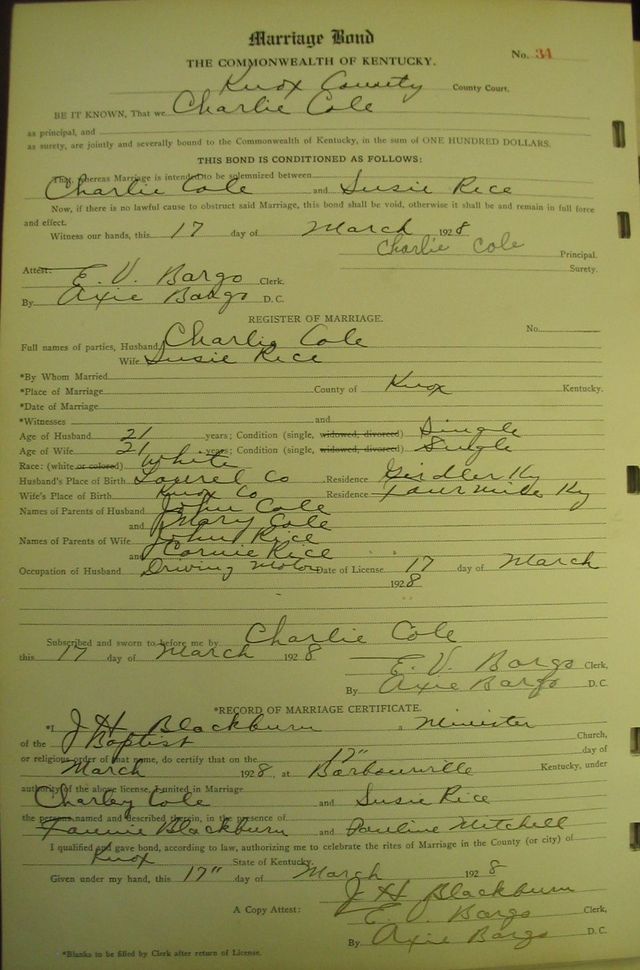 Marriage Bond
THE COMMONWEALTH OF KENTUCKY.
No. 34
Knox County County Court.
BE IT KNOWN, That we Charlie Cole
as principal, and
as surety, are jointly and severally bound to the Commonwealth of Kentucky, in the sum of ONE HUNDRED DOLLARS.
THIS BOND IS CONDITIONED AS FOLLOWS:
That, whereas Marriage is intended to be solemnized between
Charlie Cole and Susie Rice
Now, if there is no lawful cause to obstruct said Marriage, this bond shall be void, otherwise it shall be and remain in full force
and effect.
Witness our hands, this 17 day of March 1928
Charlie Cole Principal.
Surety.
Attest: E. V. Bargo Clerk.
By Axie Bargo D. C.
REGISTER OF MARRIAGE.
No.
Full names of parties, Husband Charlie Cole
Wife Susie Rice
*By Whom Married
*Place of Marriage County of Knox Kentucky.
*Date of Marriage
*Witnesses and
Age of Husband 21 years; Condition (single, widowed, divorced) Single
Age of Wife 21 years; Condition (single, widowed, divorced) Single
Race: (white or colored) White
Husband's Place of Birth Laurel Co Residence Girdler Ky
Wife's Place of Birth Knox Co Residence Four Mile Ky
Names of Parents of Husband John Cole
and Mary Cole
Names of Parents of Wife John Rice
and Rice
Occupation of Husband Driving Motor Date of License 17 day of March
1928
Subscribed and sworn to before me by Charlie Cole
this 17 day of March 1928
E. V. Bargo Clerk,
By Axie Bargo D. C.
*RECORD OF MARRIAGE CERTIFICATE.
*I J H Blackburn a Minister
of the Baptist Church,
or religious order of that name, do certify that on the 17" day of
March 1928, at Barbourville Kentucky, under
authority of the above license, I united in Marriage
Charley Cole and Susie Rice
the persons named and described therein, in the presence of
Fannie Blackburn and Pauline Mitchell
I qualified and gave bond, according to law, authorizing me to celebrate the rites of Marriage in the County (or city) of
Knox State of Kentucky.
Given under my hand, this 17" day of March 1928
J H Blackburn
A Copy Attest: E. V. Bargo Clerk,
By Axie Bargo D. C.
*Blanks to be filled by Clerk after return of License.